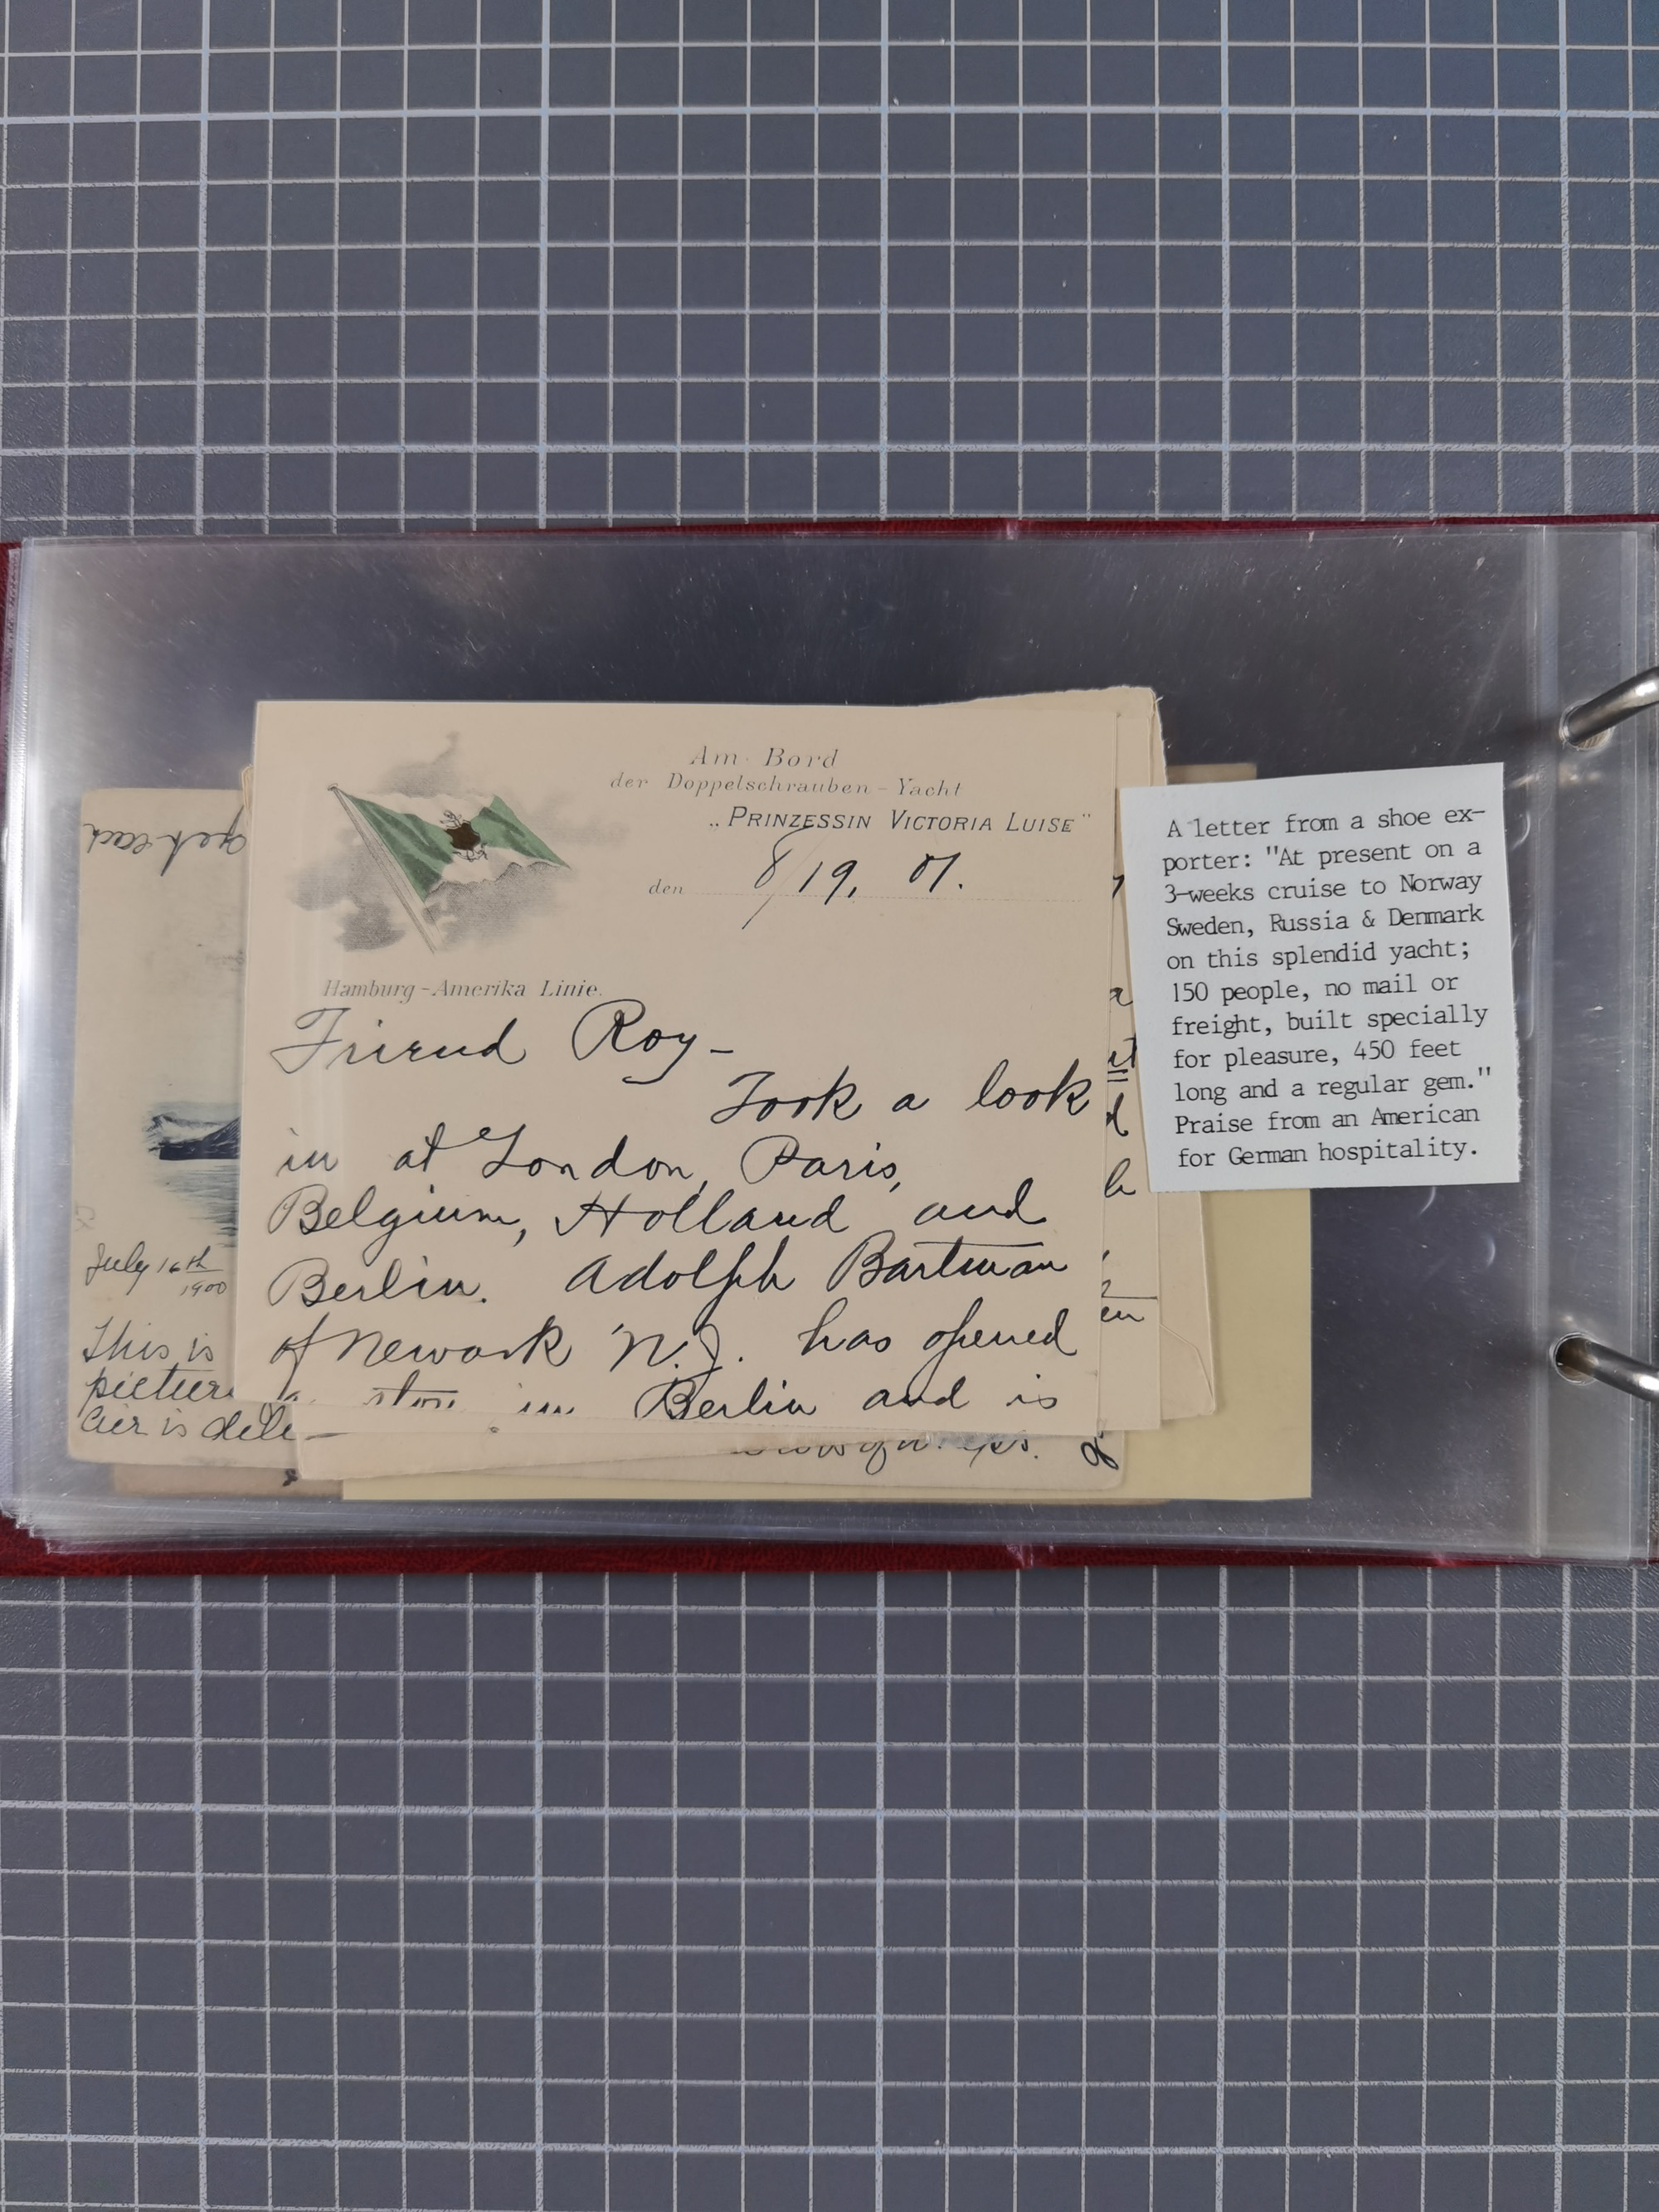 Am Bord
der Doppelschrauben-Yacht
„PRINZESSIN VICTORIA LUISE"
den 8/19, 01.
Hamburg-Amerika Linie.
Friend Roy-
Took a look
in at London, Paris,
Belgium, Holland and
Berlin. Adolph Bartman
of Newark N.J. has opened
a store in Berlin and is
A letter from a shoe ex-
porter: "At present on a
3-weeks cruise to Norway
Sweden, Russia & Denmark
on this splendid yacht;
150 people, no mail or
freight, built specially
for pleasure, 450 feet
long and a regular gem."
Praise from an American
for German hospitality.
July 16th
1900
This is
picture
air is deli-
en